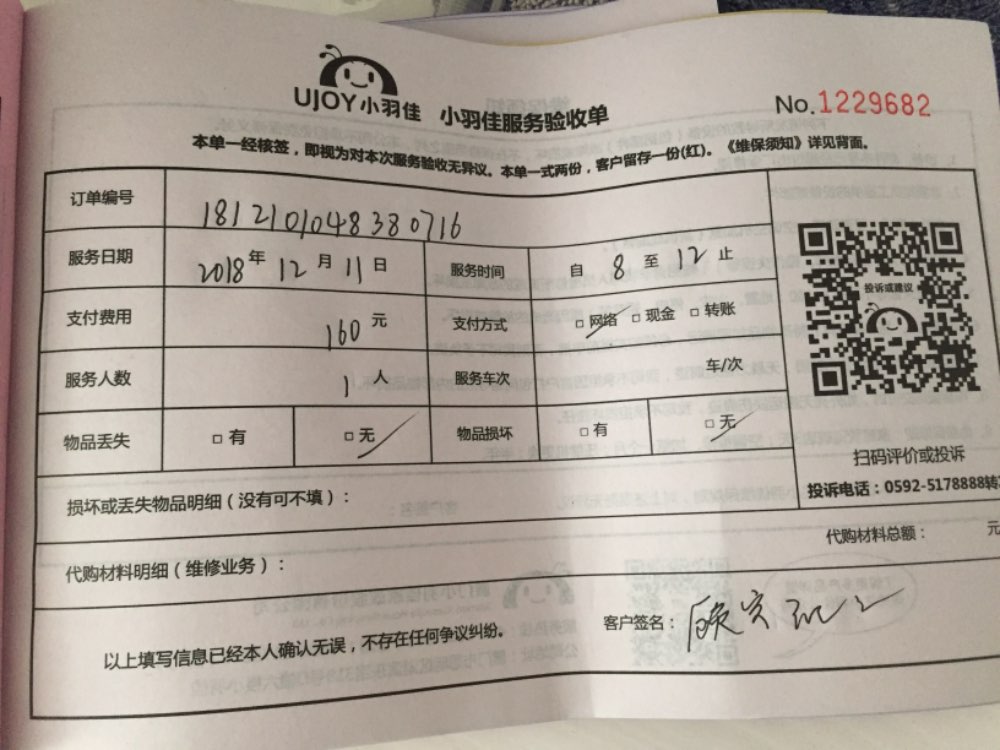 UJOY小羽佳 小羽佳服务验收单 No.1229682
本单一经核签，即视为对本次服务验收无异议。本单一式两份，客户留存一份(红)。《维保须知》详见背面。
订单编号 1812101048380716
服务日期 2018年12月11日 服务时间 自8至12止
支付费用 160元 支付方式 □网络 □现金 □转账
服务人数 1人 服务车次 车/次
物品丢失 □有 □无 物品损坏 □有 □无
投诉或建议
扫码评价或投诉
投诉电话：0592-5178888转
损坏或丢失物品明细（没有可不填）：
代购材料总额： 元
代购材料明细（维修业务）：
客户签名：
以上填写信息已经本人确认无误，不存在任何争议纠纷。